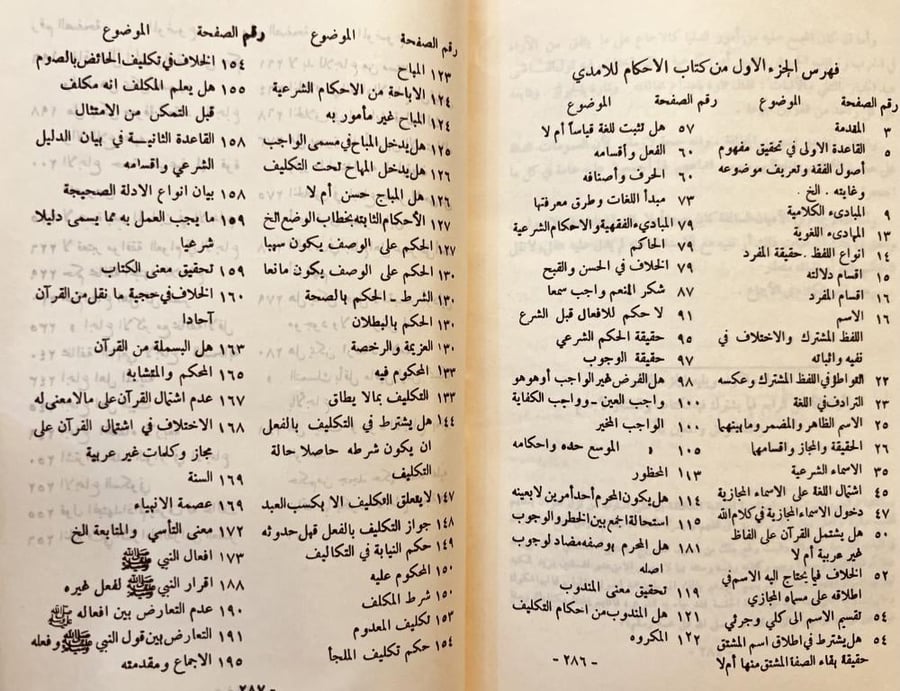 فهرس الجزء الاول من كتاب الاحكام للامدي
رقم الصفحة الموضوع
٣ المقدمة
٥ القاعدة الاولى في تحقيق مفهوم
أصول الفقه وتعريف موضوعه
وغايته . الخ .
٩ المبادىء الكلامية
١٣ المبادىء اللغوية
١٤ انواع اللفظ . حقيقة المفرد
١٥ اقسام دلالته
١٦ اقسام المفرد
١٦ الاسم
اللفظ المشترك والاختلاف في
نفيه واثباته
٢٢ التواطؤ في اللفظ المشترك وعكسه
٢٣ الترادف في اللغة
٢٥ الاسم الظاهر والمضمر وما بينهما
٢٦ الحقيقة والمجاز واقسامهما
٣٥ الاسماء الشرعية
٤٥ اشتمال اللغة على الاسماء المجازية
٤٧ دخول الاسماء المجازية في كلام الله
٥٠ هل يشتمل القرآن على الفاظ
غير عربية أم لا
٥٢ الخلاف فيما يحتاج اليه الاسم في
اطلاقه على مسماه المجازي
٥٤ تقسيم الاسم الى كلي وجزئي
٥٤ هل يشترط في اطلاق اسم المشتق
حقيقة بقاء الصفة المشتق منها أم لا
رقم الصفحة الموضوع
٥٧ هل تثبت للغة قياساً أم لا
٦٠ الفعل وأقسامه
٦٠ الحرف وأصنافه
٧٣ مبدأ اللغات وطرق معرفتها
٧٩ المباديء الفقهية والاحكام الشرعية
٧٩ الحاكم
٧٩ الخلاف في الحسن والقبح
٨٧ شكر المنعم واجب سمعا
٩١ لا حكم للافعال قبل الشرع
٩٥ حقيقة الحكم الشرعي
٩٧ حقيقة الوجوب
٩٨ هل الفرض غير الواجب أو هو هو
١٠٠ واجب العين - وواجب الكفاية
١٠٠ الواجب المخير
١٠٥ » الموسع حده واحكامه
١١٣ المحظور
١١٤ هل يكون المحرم أحد أمرين لا بعينه
١١٥ استحالة الجمع بين الخطر والوجوب
١٨١ هل المحرم بوصفه مضاد لوجوب
اصله
١١٩ تحقيق معنى المندوب
١٢١ هل المندوب من احكام التكليف
١٢٢ المكروه
- ٢٨٦ -
رقم الصفحة الموضوع
١٢٣ المباح
١٢٤ الاباحة من الاحكام الشرعية
١٢٤ المباح غير مأمور به
١٢٥ هل يدخل المباح في مسمى الواجب
١٢٦ هل يدخل المباح تحت التكليف
١٢٦ هل المباح حسن أم لا
١٢٧ الأحكام الثابته بخطاب الوضع الخ
١٢٧ الحكم على الوصف يكون سببا
١٣٠ الحكم على الوصف يكون مانعا
١٣٠ الشرط - الحكم بالصحة
١٣٠ الحكم بالبطلان
١٣٠ العزيمة والرخصة
١٣٣ المحكوم فيه
١٣٣ التكليف بما لا يطاق
١٤٤ هل يشترط في التكليف بالفعل
ان يكون شرطه حاصلا حالة
التكليف
١٤٧ لا يتعلق التكليف الا بكسب العبد
١٤٨ جواز التكليف بالفعل قبل حدوثه
١٤٩ حكم النيابة في التكاليف
١٥٠ المحكوم عليه
١٥٠ شرط المكلف
١٥٣ تكليف المعدوم
١٥٤ حكم تكليف الملجأ
رقم الصفحة الموضوع
١٥٤ الخلاف في تكليف الحائض بالصوم
١٥٥ هل يعلم المكلف انه مكلف
قبل التمكن من الامتثال
١٥٨ القاعدة الثانيسة في بيان الدليل
الشرعي واقسامه
١٥٨ بيان انواع الادلة الصحيحة
١٥٩ ما يجب العمل به مما يسمى دليلا
شرعيا
١٥٩ تحقيق معنى الكتاب
١٦٠ الخلاف في حجية ما نقل من القرآن
آحادا
١٦٣ هل البسملة من القرآن
١٦٥ المحكم والمتشابه
١٦٧ عدم اشتمال القرآن على مالا معنى له
١٦٨ الاختلاف في اشتمال القرآن على
مجاز وكلمات غير عربية
١٦٩ السنة
١٦٩ عصمة الانبياء
١٧٢ معنى التأسي والمتابعة الخ
١٧٣ افعال النبي ﷺ
١٨٨ اقرار النبي ﷺ لفعل غيره
١٩٠ عدم التعارض بين افعاله ﷺ
١٩١ التعارض بين قول النبي ﷺ وفعله
١٩٥ الاجماع ومقدمته
- ٢٨٧ -